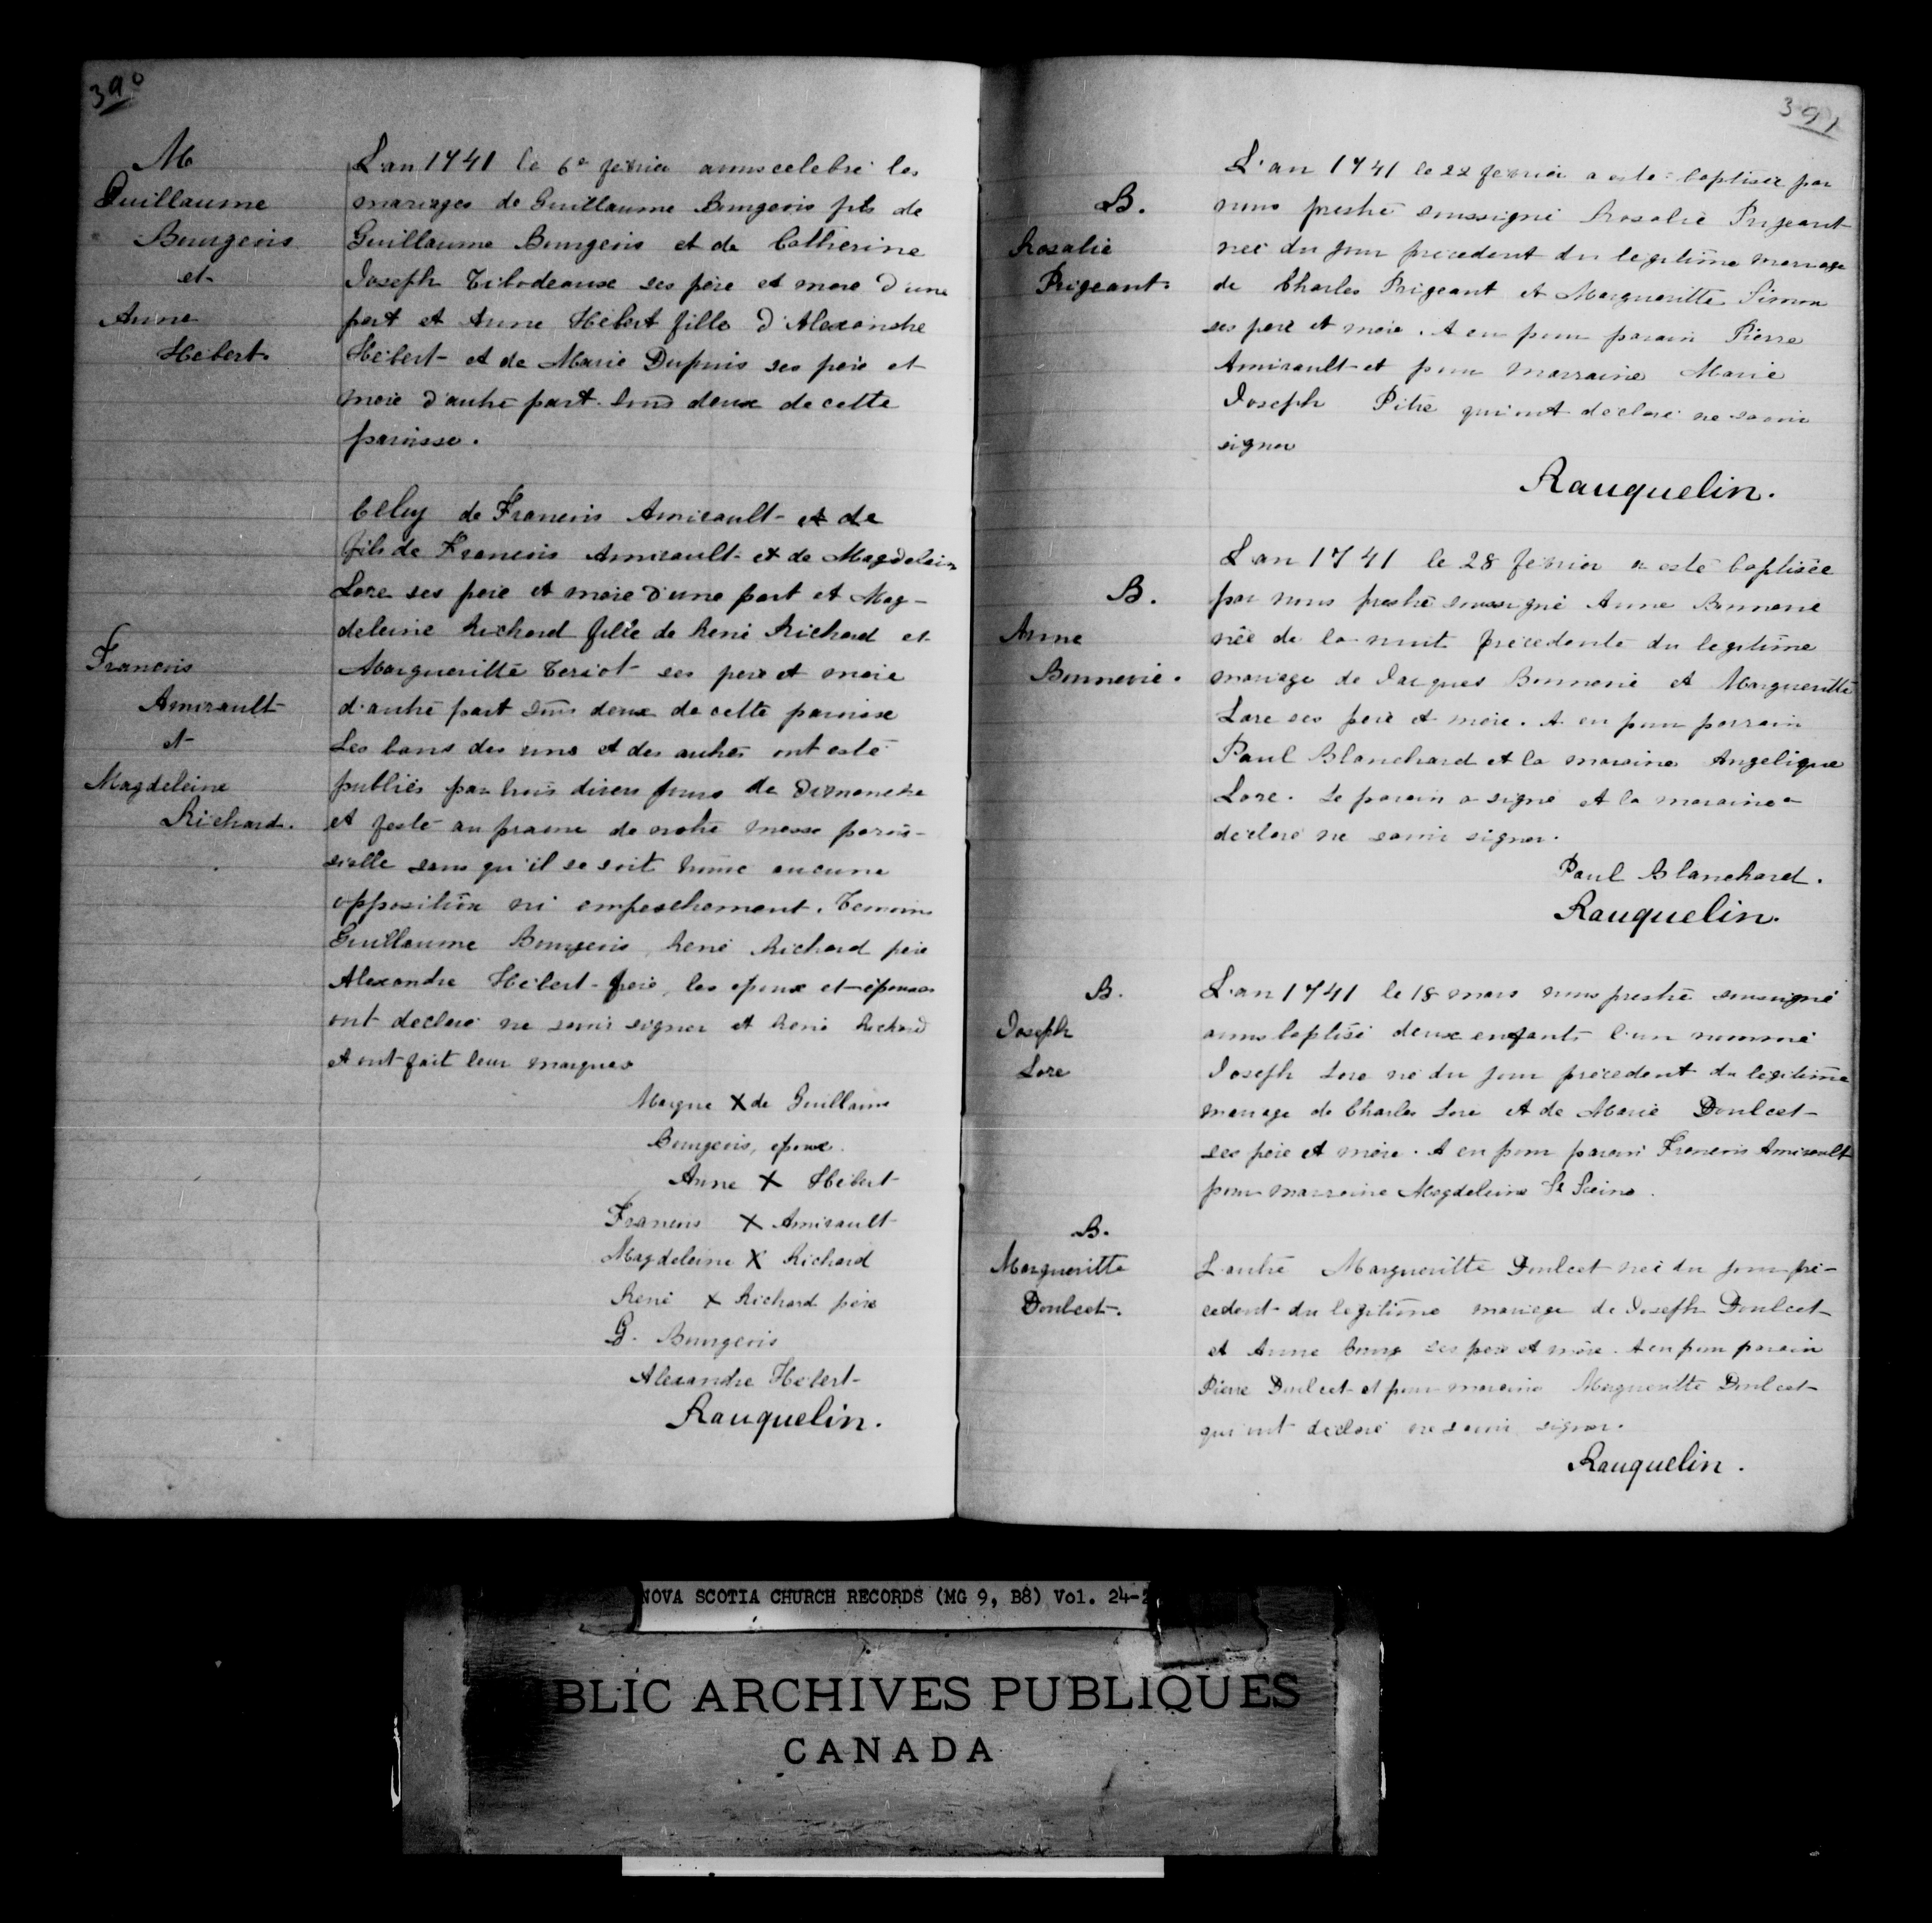 390
M
Guillaume
Bourgeois
et
Anne
Hébert.
L'an 1741 le 6e fevrier avons celebré les
mariages de Guillaume Bourgeois fils de
Guillaume Bourgeois et de Catherine
Joseph Tibodeause ses père et mere d'une
part et Anne Hébert fille d'Alexandre
Hébert et de Marie Dupuis ses père et
mere d'autre part tous deux de cette
paroisse.
Francois
Amirault
et
Magdeleine
Richard.
Celuy de Francois Amirault et de
fils de Francois Amirault et de Magdelein
Lore ses pere et mere d'une part et Mag-
deleine Richard fille de René Richard et
Margueritte Teriot ses pere et mere
d'autre part tous deux de cette paroisse
Les bans des uns et des autres ont esté
publiés par trois divers jours de dimanche
et feste au prosne de notre messe parois-
sielle sans qu'il se soit trouvé aucune
opposition ni empeschement. Temoins
Guillaume Bourgeois, René Richard père
Alexandre Hébert frere, les epoux et épouses
ont declaré ne savoir signer et René Richard
et ont fait leur marques
Marque X de Guillaume
Bourgeois, epoux.
Anne X Hébert
Francois X Amirault
Magdeleine X Richard
René X Richard père
G. Bourgeois
Alexandre Hébert
Rauquelin.
391
B.
Rosalie
Prigeant.
L'an 1741 le 22 fevrier a esté baptisée par
nous prestre soussigné Rosalie Prigeant
née du jour précedent du legitime mariage
de Charles Prigeant et Margueritte Simon
ses pere et mere. A eu pour parain Pierre
Amirault et pour marraine Marie
Joseph Pitre qui ont declaré ne savoir
signer
Rauquelin.
B.
Anne
Bonnevie.
L'an 1741 le 28 fevrier a esté baptisée
par nous prestre soussigné Anne Bonnevie
née de la nuit précedente du legitime
mariage de Jacques Bonnevie et Margueritte
Lore ses pere et mere. A eu pour parrain
Paul Blanchard et la maraine Angelique
Lore. Le parain a signé et la maraine a
declaré ne savoir signer.
Paul Blanchard.
Rauquelin.
B.
Joseph
Lore
L'an 1741 le 18 mars nous prestre soussigné
avons baptisé deux enfants l'un nommé
Joseph Lore né du jour précedent du legitime
mariage de Charles Lore et de Marie Doulcet
ses père et mère. A eu pour parain Francois Amirault
pour marraine Magdeleine St Seine.
B.
Margueritte
Doulcet.
L'autre Margueritte Doulcet née du jour pré-
cedent du legitime mariage de Joseph Doulcet
et Anne Bourg ses pere et mère. A eu pour parain
Pierre Doulcet et pour maraine Margueritte Doulcet
qui ont déclaré ne savoir signer.
Rauquelin.
NOVA SCOTIA CHURCH RECORDS (MG 9, B8) Vol. 24-2
BLIC ARCHIVES PUBLIQUES
CANADA